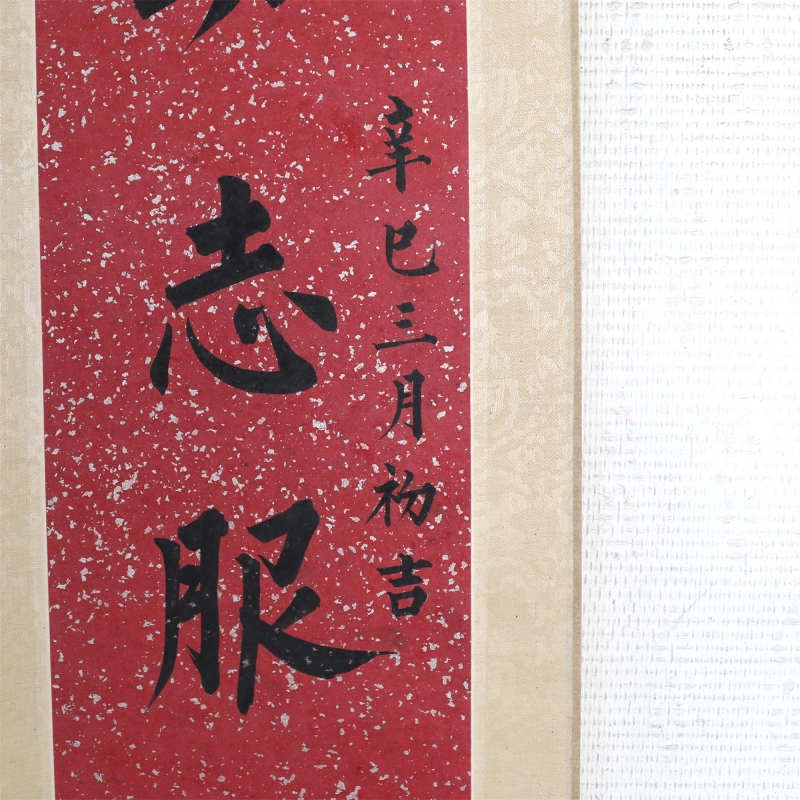 辛巳三月初吉
志服